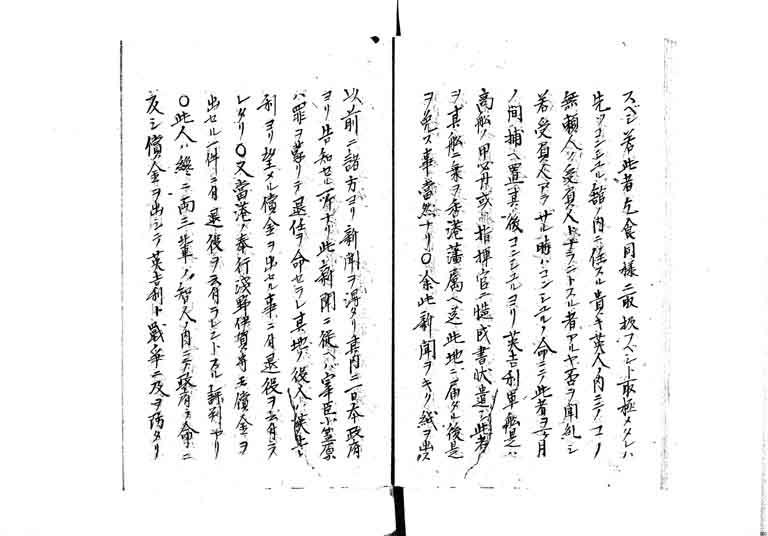 スベシ若此者乞食同様ニ取扱フベシト取極メタレハ
先ツコンシユル館ノ内ニ住スル貴キ英人ノ内ニテコノ
無頼人ノ受負人トナラントスル者アルヤ否ヲ聞糺シ
若受負人アラサル時ハコンシユルノ命ニテ此者ヲ月
ノ間捕ヘ置其後コンシユルヨリ英吉利軍艦又ハ
商船ノ甲必丹或ハ指揮官ニ書状遣シ此者
ヲ其船ニ乗ヲ香港藩属ヘ送此地ニ届タル後是
ヲ免ス事當然ナリ〇余此新聞ヲキリ紙ヲ出ス
以前ニ諸方ヨリ新聞ヲ得タリ其内ニ日本政府
ヨリ告知セル所ナリ此新聞ニ従ヘハ宰臣小笠原
ハ罪ヲ蒙リテ退任ヲ命セラレ其地ノ役人ハ英吉
利ヨリ望メル償金ヲ出セル事ニ付退役ヲ云付ラ
レタリ〇又當港ノ奉行浅野伊賀守モ償金ヲ
出セル一件ニ付退役ヲ云付ラレントスル評判アリ
〇此人ハ終ニ両三輩ノ智人ノ内ニテ政府ノ命ニ
反シ償金ヲ出シテ英吉利ト戦争ニ及ヲ防タリ